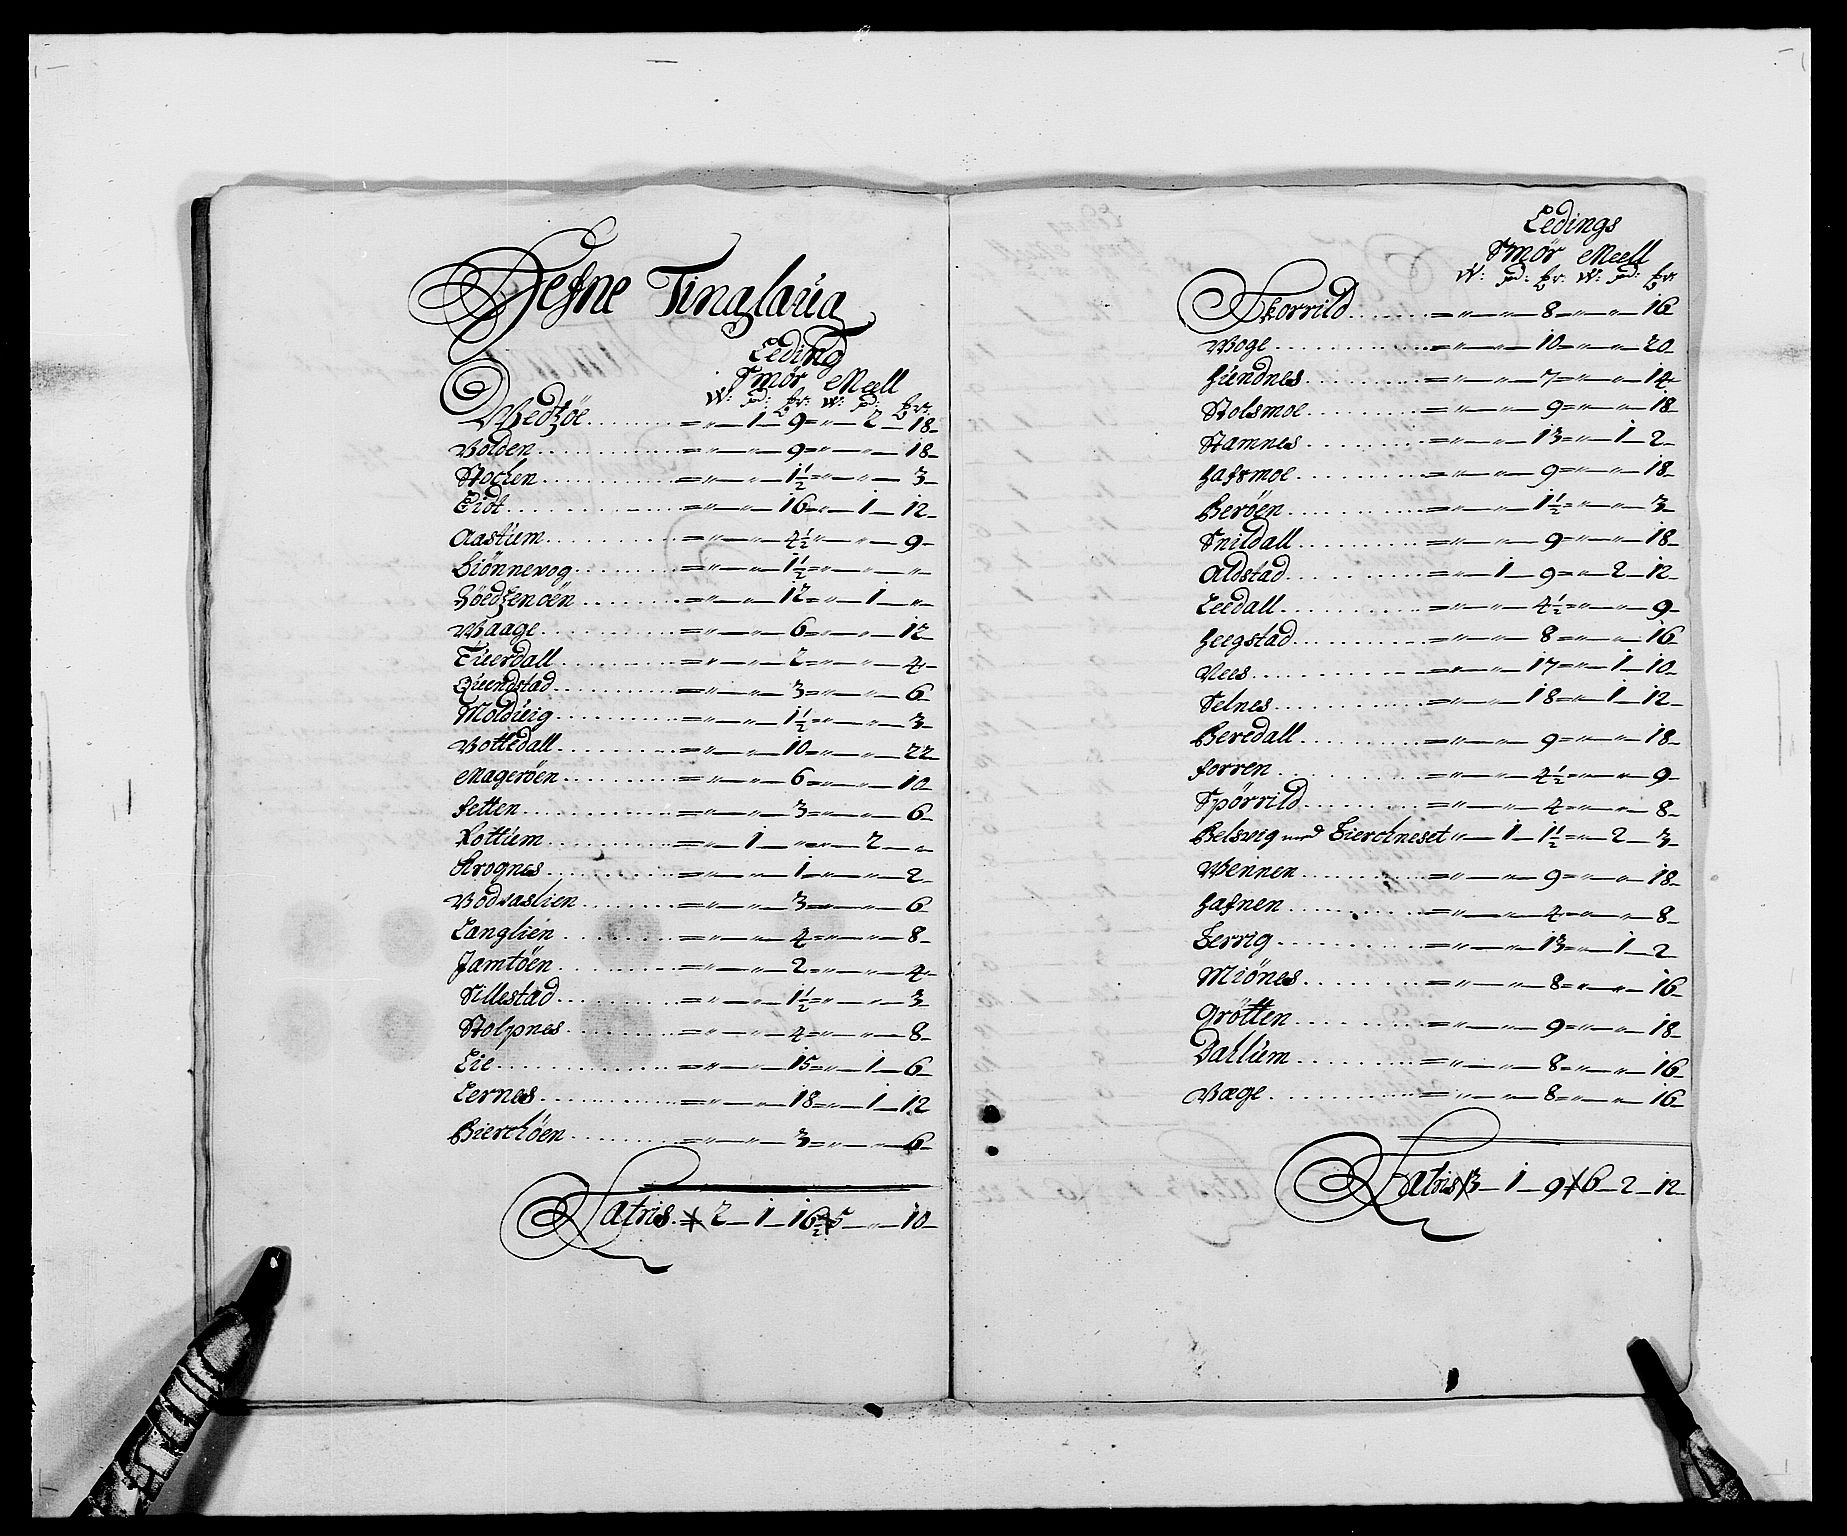 Hefne Tinglaug
Leding
Smör Meell
W: pd: br: W: pd: br:
Wedzöe ........ = " — 1 — 9 = " — 2 — 18 —
Volden ........ = " — " — 9 = " — " — 18 —
Stochen ........ = " — " — 1½ = " — " — 3 —
Eidt ........ = " — " — 16 = " — 1 — 12 —
Aastum ........ = " — " — 4½ = " — " — 9 —
Hiönnevog ........ = " — " — 1½ = " — " — " —
Röedzenöen ........ = " — " — 12 = " — 1 — " —
Waage ........ = " — " — 6 = " — " — 12
Tuerdall ........ = " — " — 2 = " — " — 4 —
Quendstad ........ = " — " — 3 = " — " — 6
Moldueig ........ = " — " — 1½ = " — " — 3 —
Vottedall ........ = " — " — 10 = " — " — 22 —
Mageröen ........ = " — " — 6 = " — " — 10 —
Fetten ........ = " — " — 3 = " — " — 6 —
Kottum ........ = " — 1 — " = " — 2 — " —
Krognes ........ = " — " — 1 = " — " — 2 —
Vodvaslien ........ = " — " — 3 = " — " — 6 —
Langlien ........ = " — " — 4 = " — " — 8 —
Jamtöen ........ = " — " — 2 = " — " — 4 —
Sillestad ........ = " — " — 1½ = " — " — 3
Stolpnes ........ = " — " — 4 = " — " — 8 —
Lie ........ = " — " — 15 = " — 1 — 6 —
Lernes ........ = " — " — 18 = " — 1 — 12
Bierchöen ........ = " — " — 3 = " — " — 6 —
Latris. 2 — 1 — 16½ 5 — " — 10 —
Ledings
Smör Meell
W: pd: br: W: pd: br:
Skorrild ........ = " — " — 8 = " — " — 16
Woge ........ = " — " — 10 = " — " — 20 —
Hundnes ........ = " — " — 7 = " — " — 14
Stolsmoe ........ = " — " — 9 = " — " — 18 —
Stamnes ........ = " — " — 13 = " — 1 — 2 —
Hafsmoe ........ = " — " — 9 = " — " — 18 —
Beröen ........ = " — " — 1½ = " — " — 3 —
Snildall ........ = " — " — 9 = " — " — 18 —
Aldstad ........ = " — 1 — 9 = " — 2 — 12 —
Leedall ........ = " — " — 4½ = " — " — 9 —
Heegstad ........ = " — " — 8 = " — " — 16 —
Nees ........ = " — " — 17 = " — 1 — 10 —
Selnes ........ = " — " — 18 = " — 1 — 12 —
Beredall ........ = " — " — 9 = " — " — 18 —
Forren ........ = " — " — 4½ = " — " — 9 —
Spörrild ........ = " — " — 4 = " — " — 8 —
Belsvig med Kierchneset " — 1 — 1½ = " — 2 — 3 —
Wennen ........ = " — " — 9 = " — " — 18 —
Hafnen ........ = " — " — 4 = " — " — 8 —
Berrig ........ = " — " — 13 = " — 1 — 2
Miönes ........ = " — " — 8 = " — " — 16 —
Grötten ........ = " — " — 9 = " — " — 18 —
Dallum ........ = " — " — 8 = " — " — 16 —
Væge ........ = " — " — 8 = " — " — 16 —
Latris 3 — 1 — 9 6 — 2 — 12 —